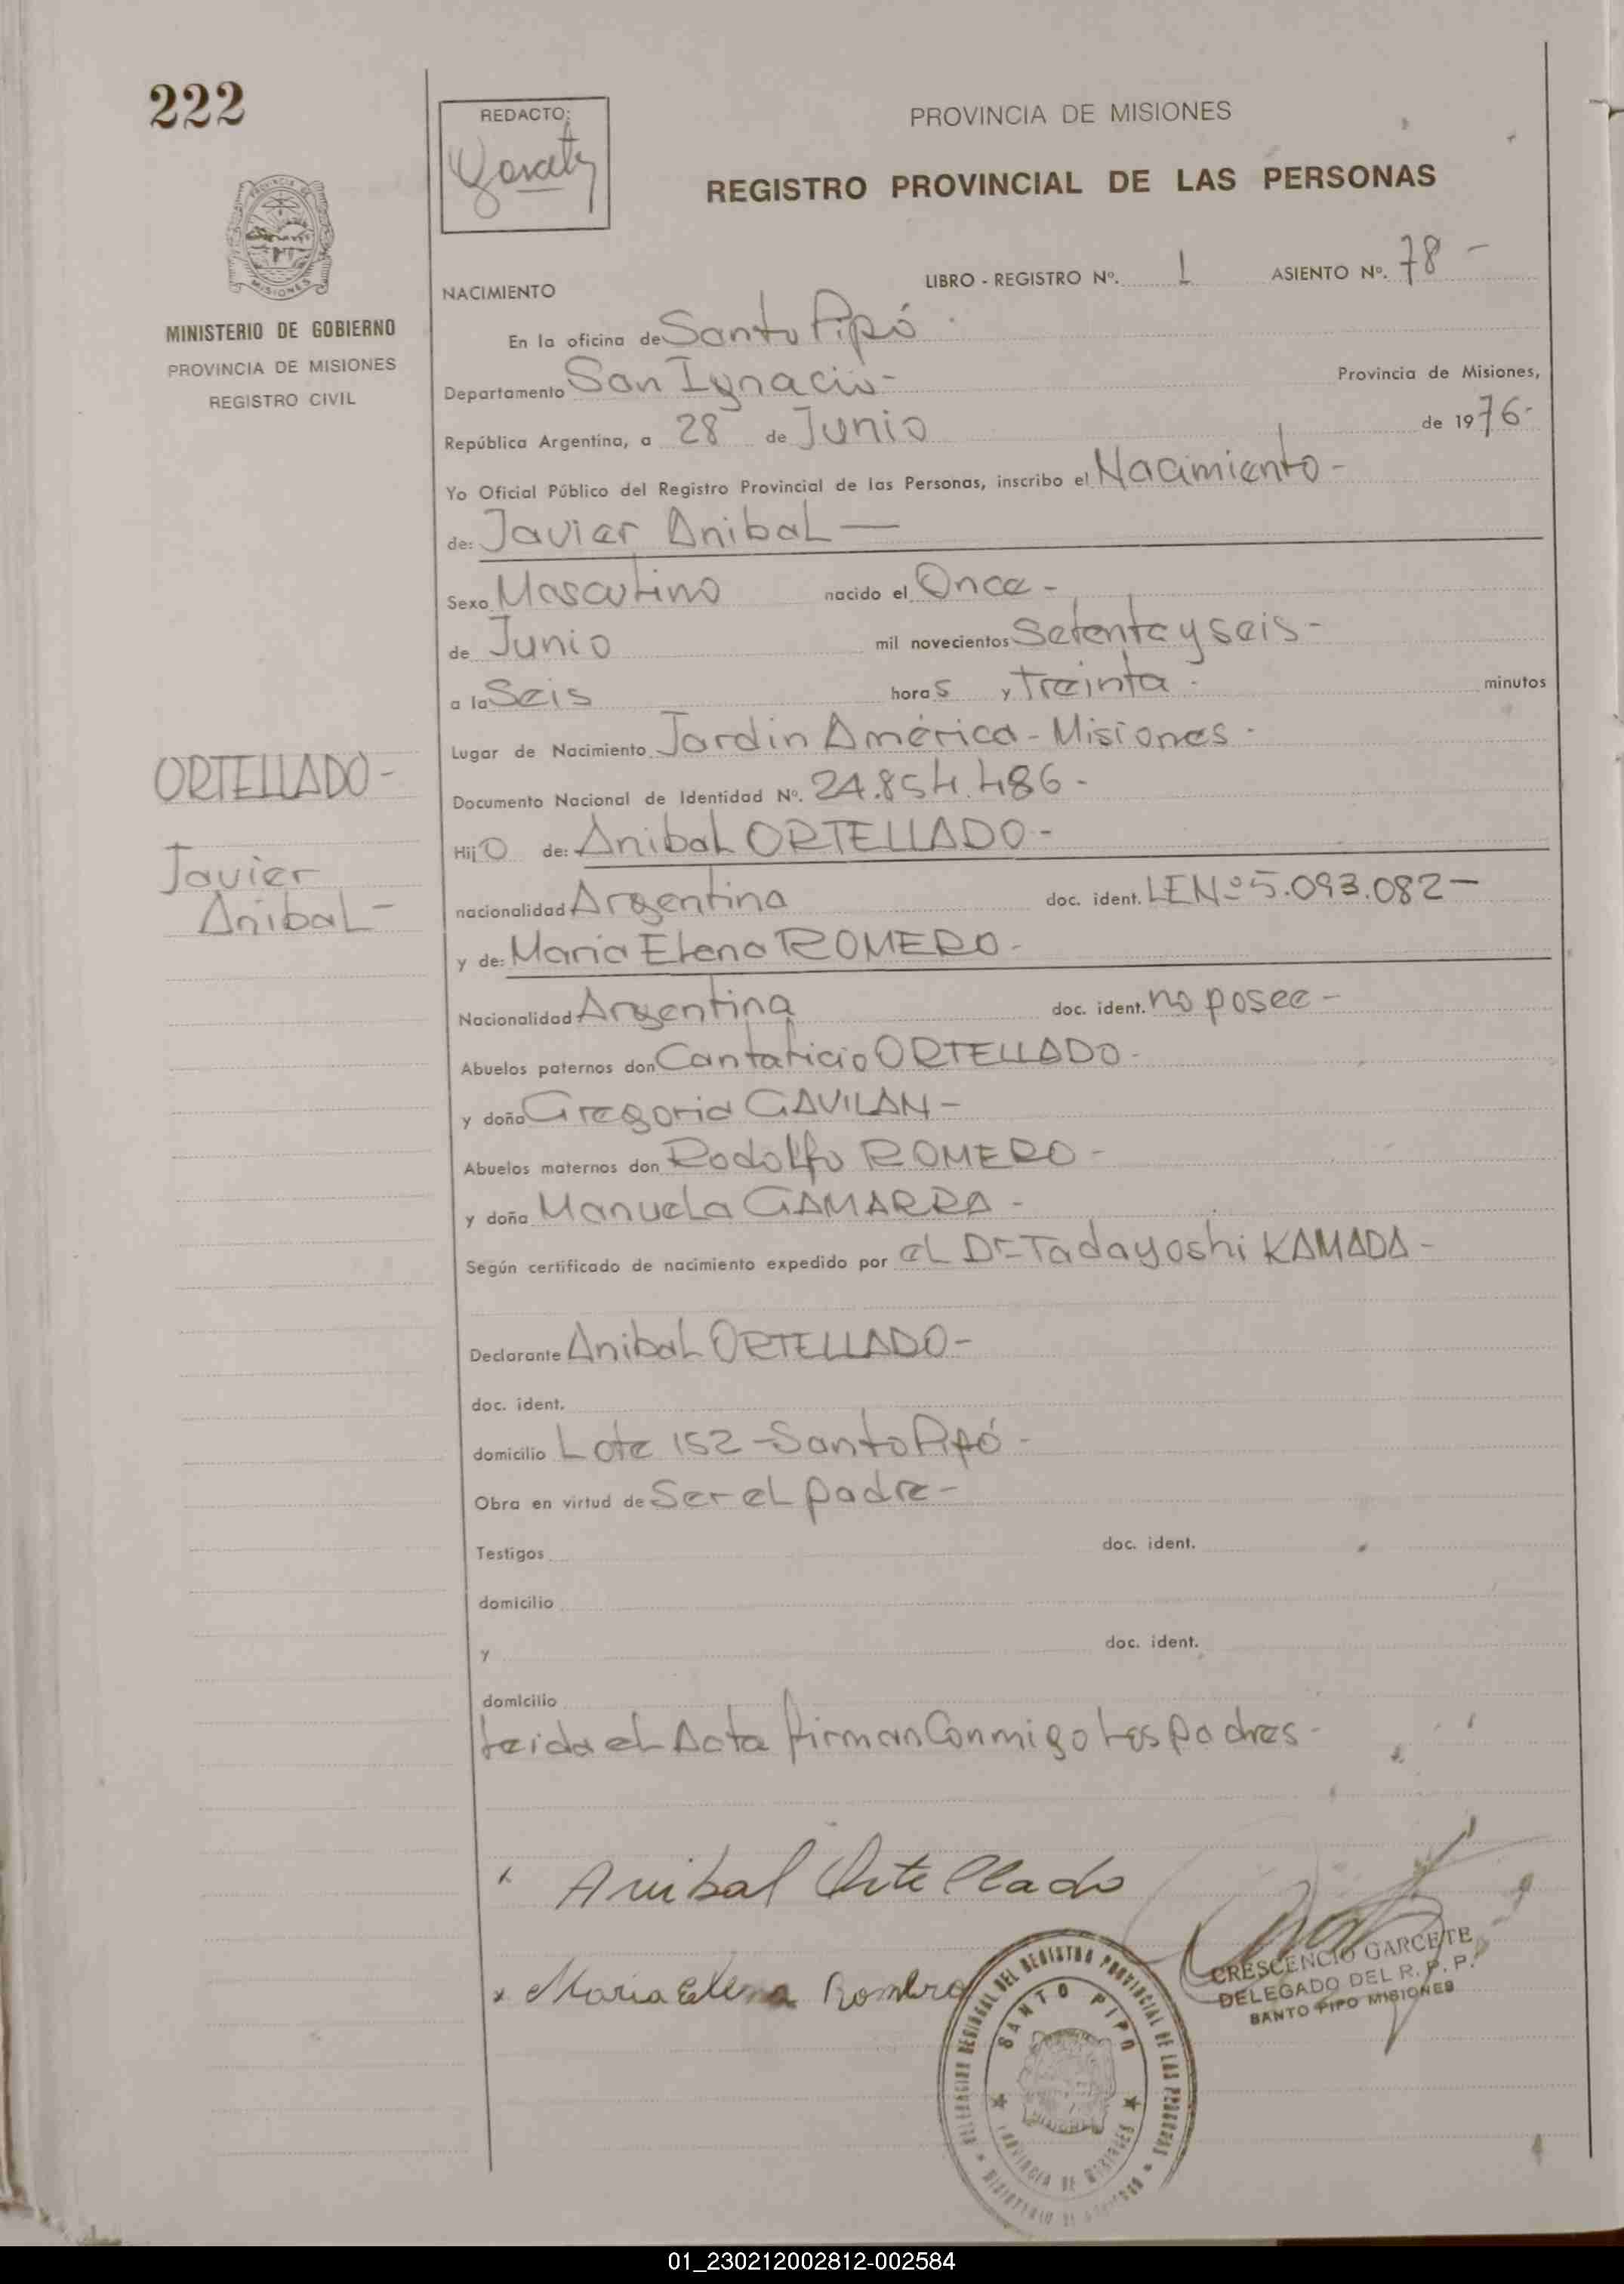 222
REDACTO:
PROVINCIA DE MISIONES
REGISTRO PROVINCIAL DE LAS PERSONAS
MISIONES
MINISTERIO DE GOBIERNO
PROVINCIA DE MISIONES
REGISTRO CIVIL
LIBRO - REGISTRO Nº. 1 ASIENTO Nº. 78 -
NACIMIENTO
En la oficina de Santo Pipó -
Departamento San Ignacio - Provincia de Misiones,
República Argentina, a 28 de Junio de 1976-
Yo Oficial Público del Registro Provincial de las Personas, inscribo el Nacimiento -
de: Javier Anibal —
Sexo Masculino nacido el Once -
de Junio mil novecientos Setenta y seis -
a la Seis horas y Treinta - minutos
Lugar de Nacimiento Jardin América - Misiones -
Documento Nacional de Identidad Nº. 24.854.486 -
ORTELLADO -
Javier
Anibal -
Hijo de: Anibal ORTELLADO -
nacionalidad Argentina doc. ident. LENº 5.093.082 —
y de: Maria Elena ROMERO -
Nacionalidad Argentina doc. ident. no posee -
Abuelos paternos don Cantalicio ORTELLADO -
y doña Gregoria GAVILAN -
Abuelos maternos don Rodolfo ROMERO -
y doña Manuela GAMARRA -
Según certificado de nacimiento expedido por el Dr Tadayoshi KAMADA -
Declarante Anibal ORTELLADO -
doc. ident.
domicilio Lote 152 - Santo Pipó -
Obra en virtud de Ser el padre -
Testigos doc. ident.
domicilio
y doc. ident.
domicilio
leida el Acta firman Conmigo los padres -
Anibal Ortellado
x Maria Elena Romero
CRESCENCIO GARCETE
DELEGADO DEL R. P. P.
SANTO PIPO MISIONES
DELEGACION REGIONAL DEL REGISTRO PROVINCIAL DE LAS PERSONAS
SANTO PIPO
PROVINCIA DE MISIONES
MINISTERIO DE GOBIERNO
01_230212002812-002584